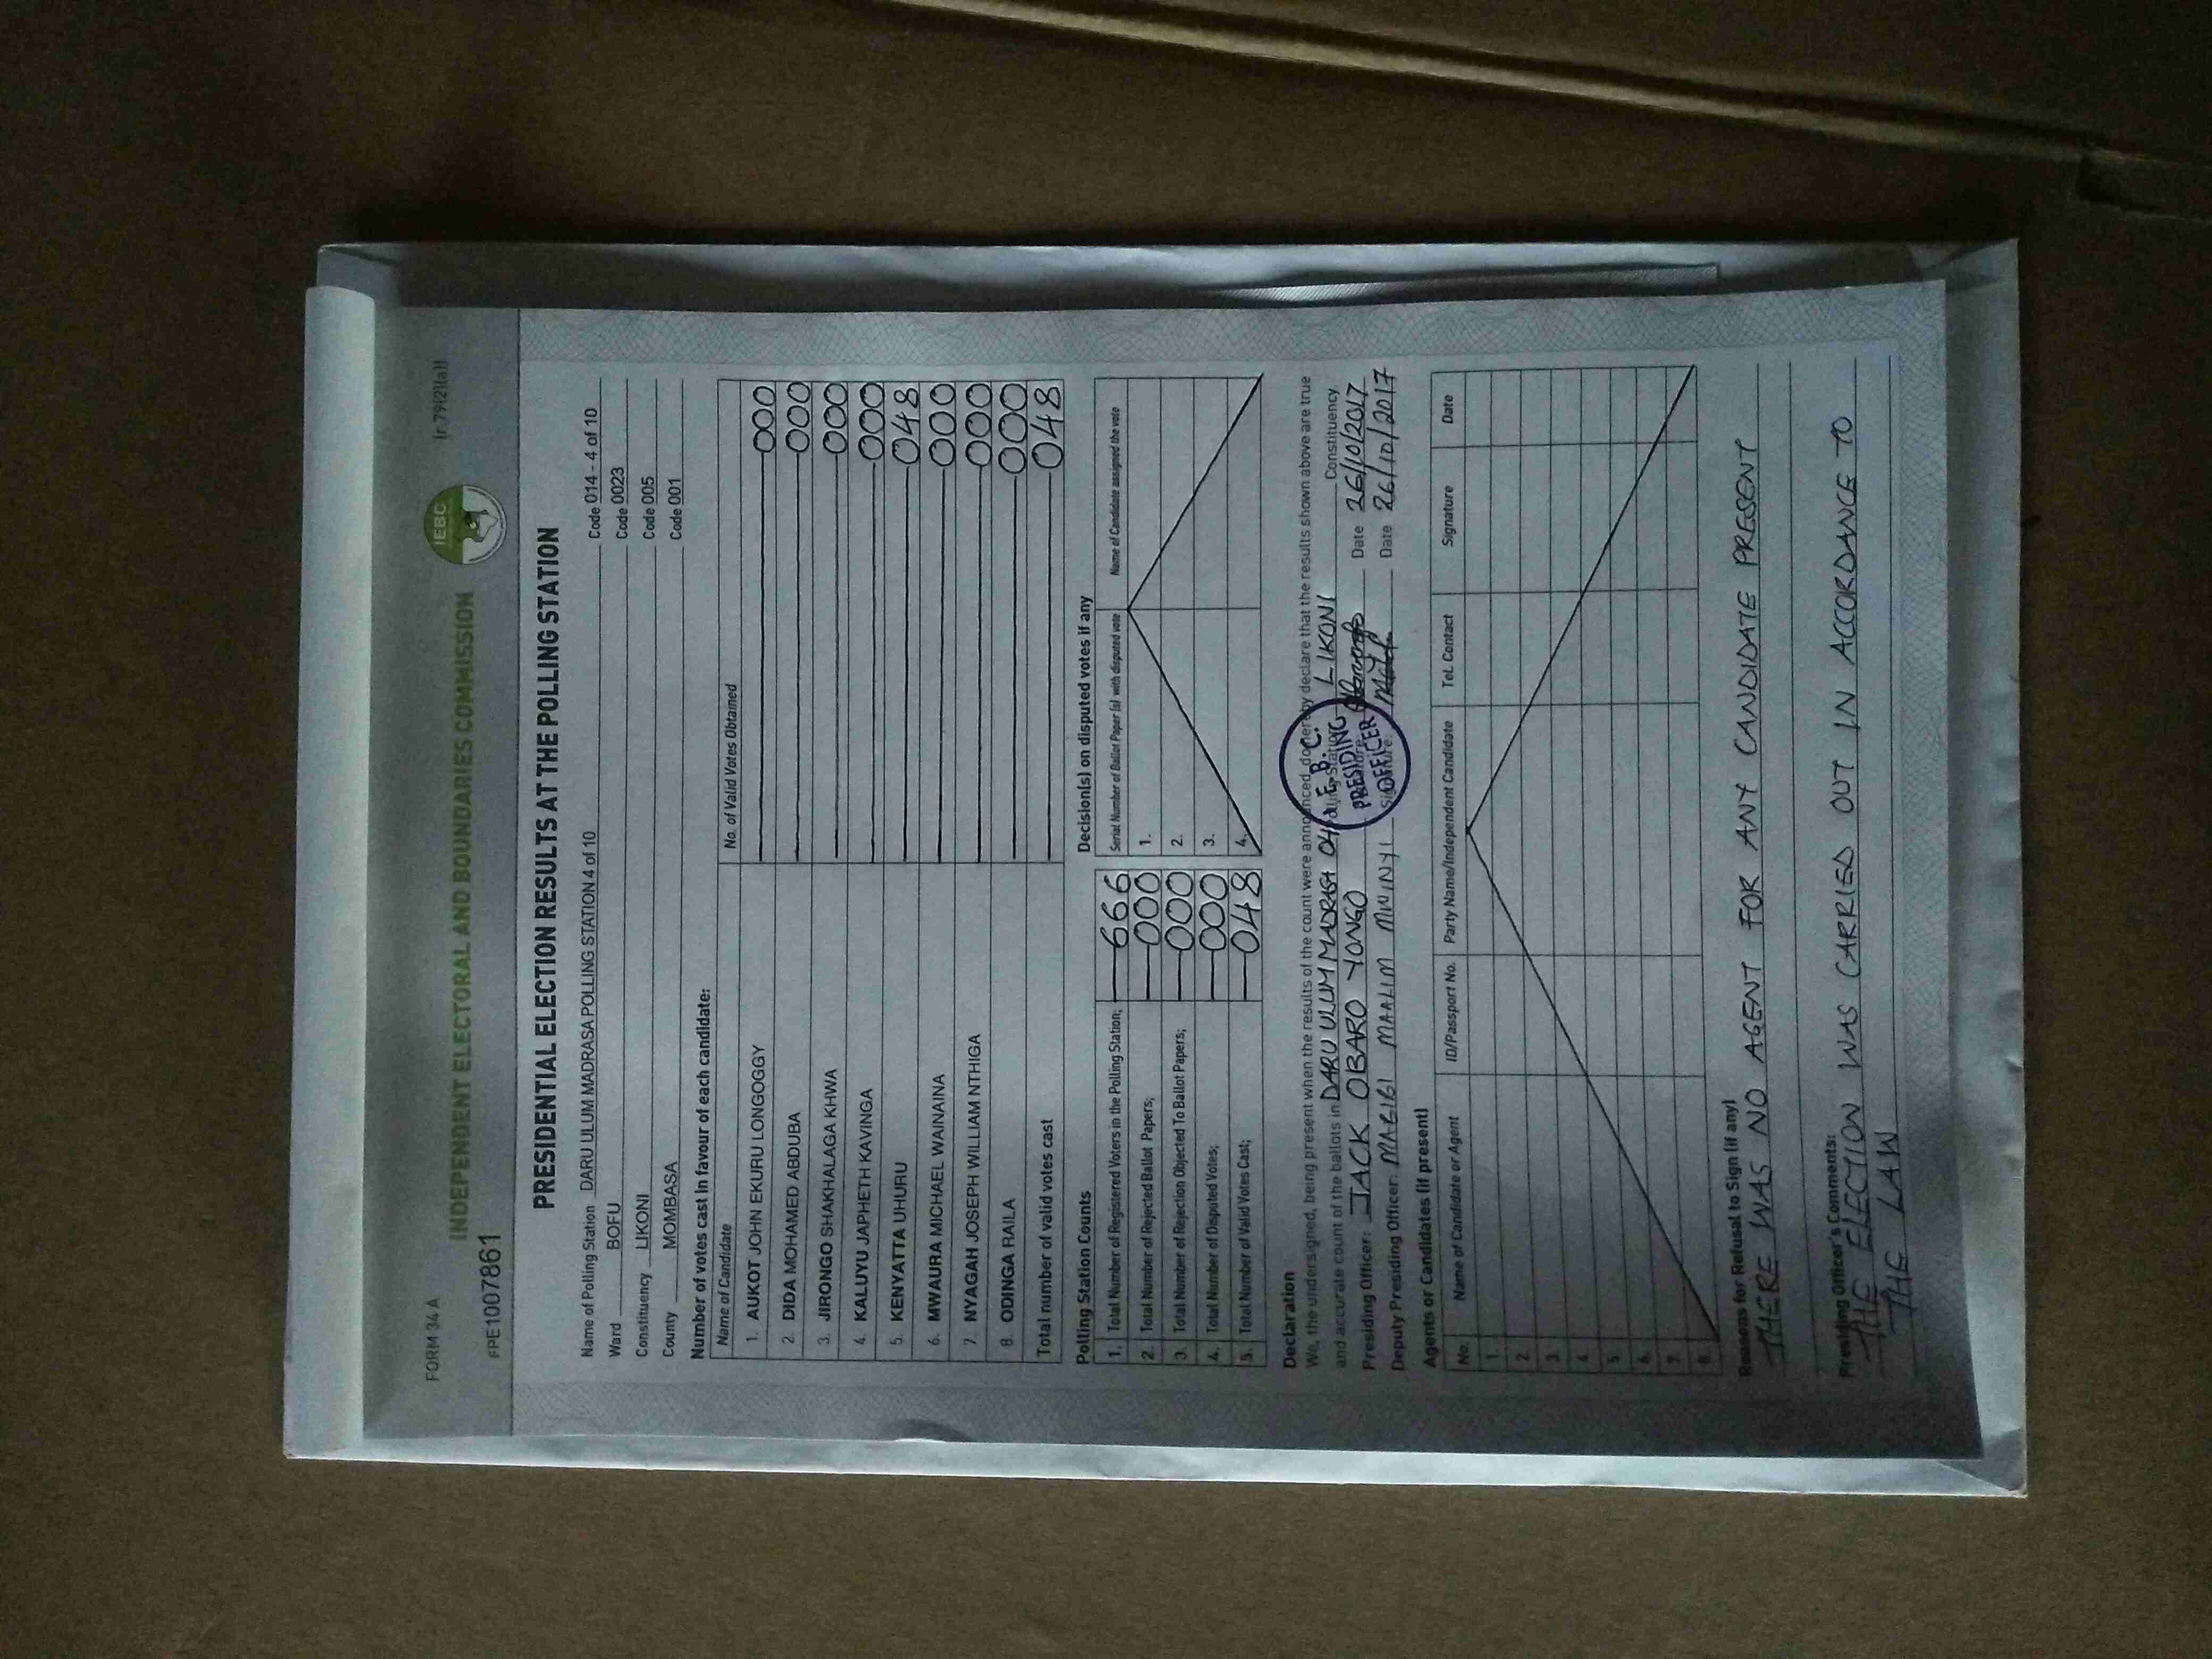 FORM 34 A
(r 79(2)(a))
INDEPENDENT ELECTORAL AND BOUNDARIES COMMISSION
IEBC
FPE1007861
PRESIDENTIAL ELECTION RESULTS AT THE POLLING STATION
Name of Polling Station DARU ULUM MADRASA POLLING STATION 4 of 10 Code 014 - 4 of 10
Ward BOFU Code 0023
Constituency LIKONI Code 005
County MOMBASA Code 001
Number of votes cast in favour of each candidate:
Name of Candidate No. of Valid Votes Obtained
1. AUKOT JOHN EKURU LONGOGGY 000
2. DIDA MOHAMED ABDUBA 000
3. JIRONGO SHAKHALAGA KHWA 000
4. KALUYU JAPHETH KAVINGA 000
5. KENYATTA UHURU 048
6. MWAURA MICHAEL WAINAINA 000
7. NYAGAH JOSEPH WILLIAM NTHIGA 000
8 ODINGA RAILA 000
Total number of valid votes cast 048
Polling Station Counts
1. Total Number of Registered Voters in the Polling Station; 666
2. Total Number of Rejected Ballot Papers; 000
3. Total Number of Rejection Objected To Ballot Papers; 000
4. Total Number of Disputed Votes; 000
5. Total Number of Valid Votes Cast; 048
Decision(s) on disputed votes if any
Serial Number of Ballot Paper (s) with disputed vote Name of Candidate assigned the vote
1.
2.
3.
4.
Declaration
We, the undersigned, being present when the results of the count were announced, do hereby declare that the results shown above are true
and accurate count of the ballots in DARU ULUM MADRASA LIKONI Constituency.
Presiding Officer: JACK OBARO YONGO Date 26/10/2017
Deputy Presiding Officer: MAALIM MWINYI Date 26/10/2017
I. E. B. C.
PRESIDING
OFFICER
Agents or Candidates (if present)
No. Name of Candidate or Agent ID/Passport No. Party Name/Independent Candidate Tel. Contact Signature Date
1.
2.
3.
4.
5
6.
7.
8.
Reasons for Refusal to Sign (if any)
THERE WAS NO AGENT FOR ANY CANDIDATE PRESENT
Presiding Officer's Comments:
THE ELECTION WAS CARRIED OUT IN ACCORDANCE TO
THE LAW